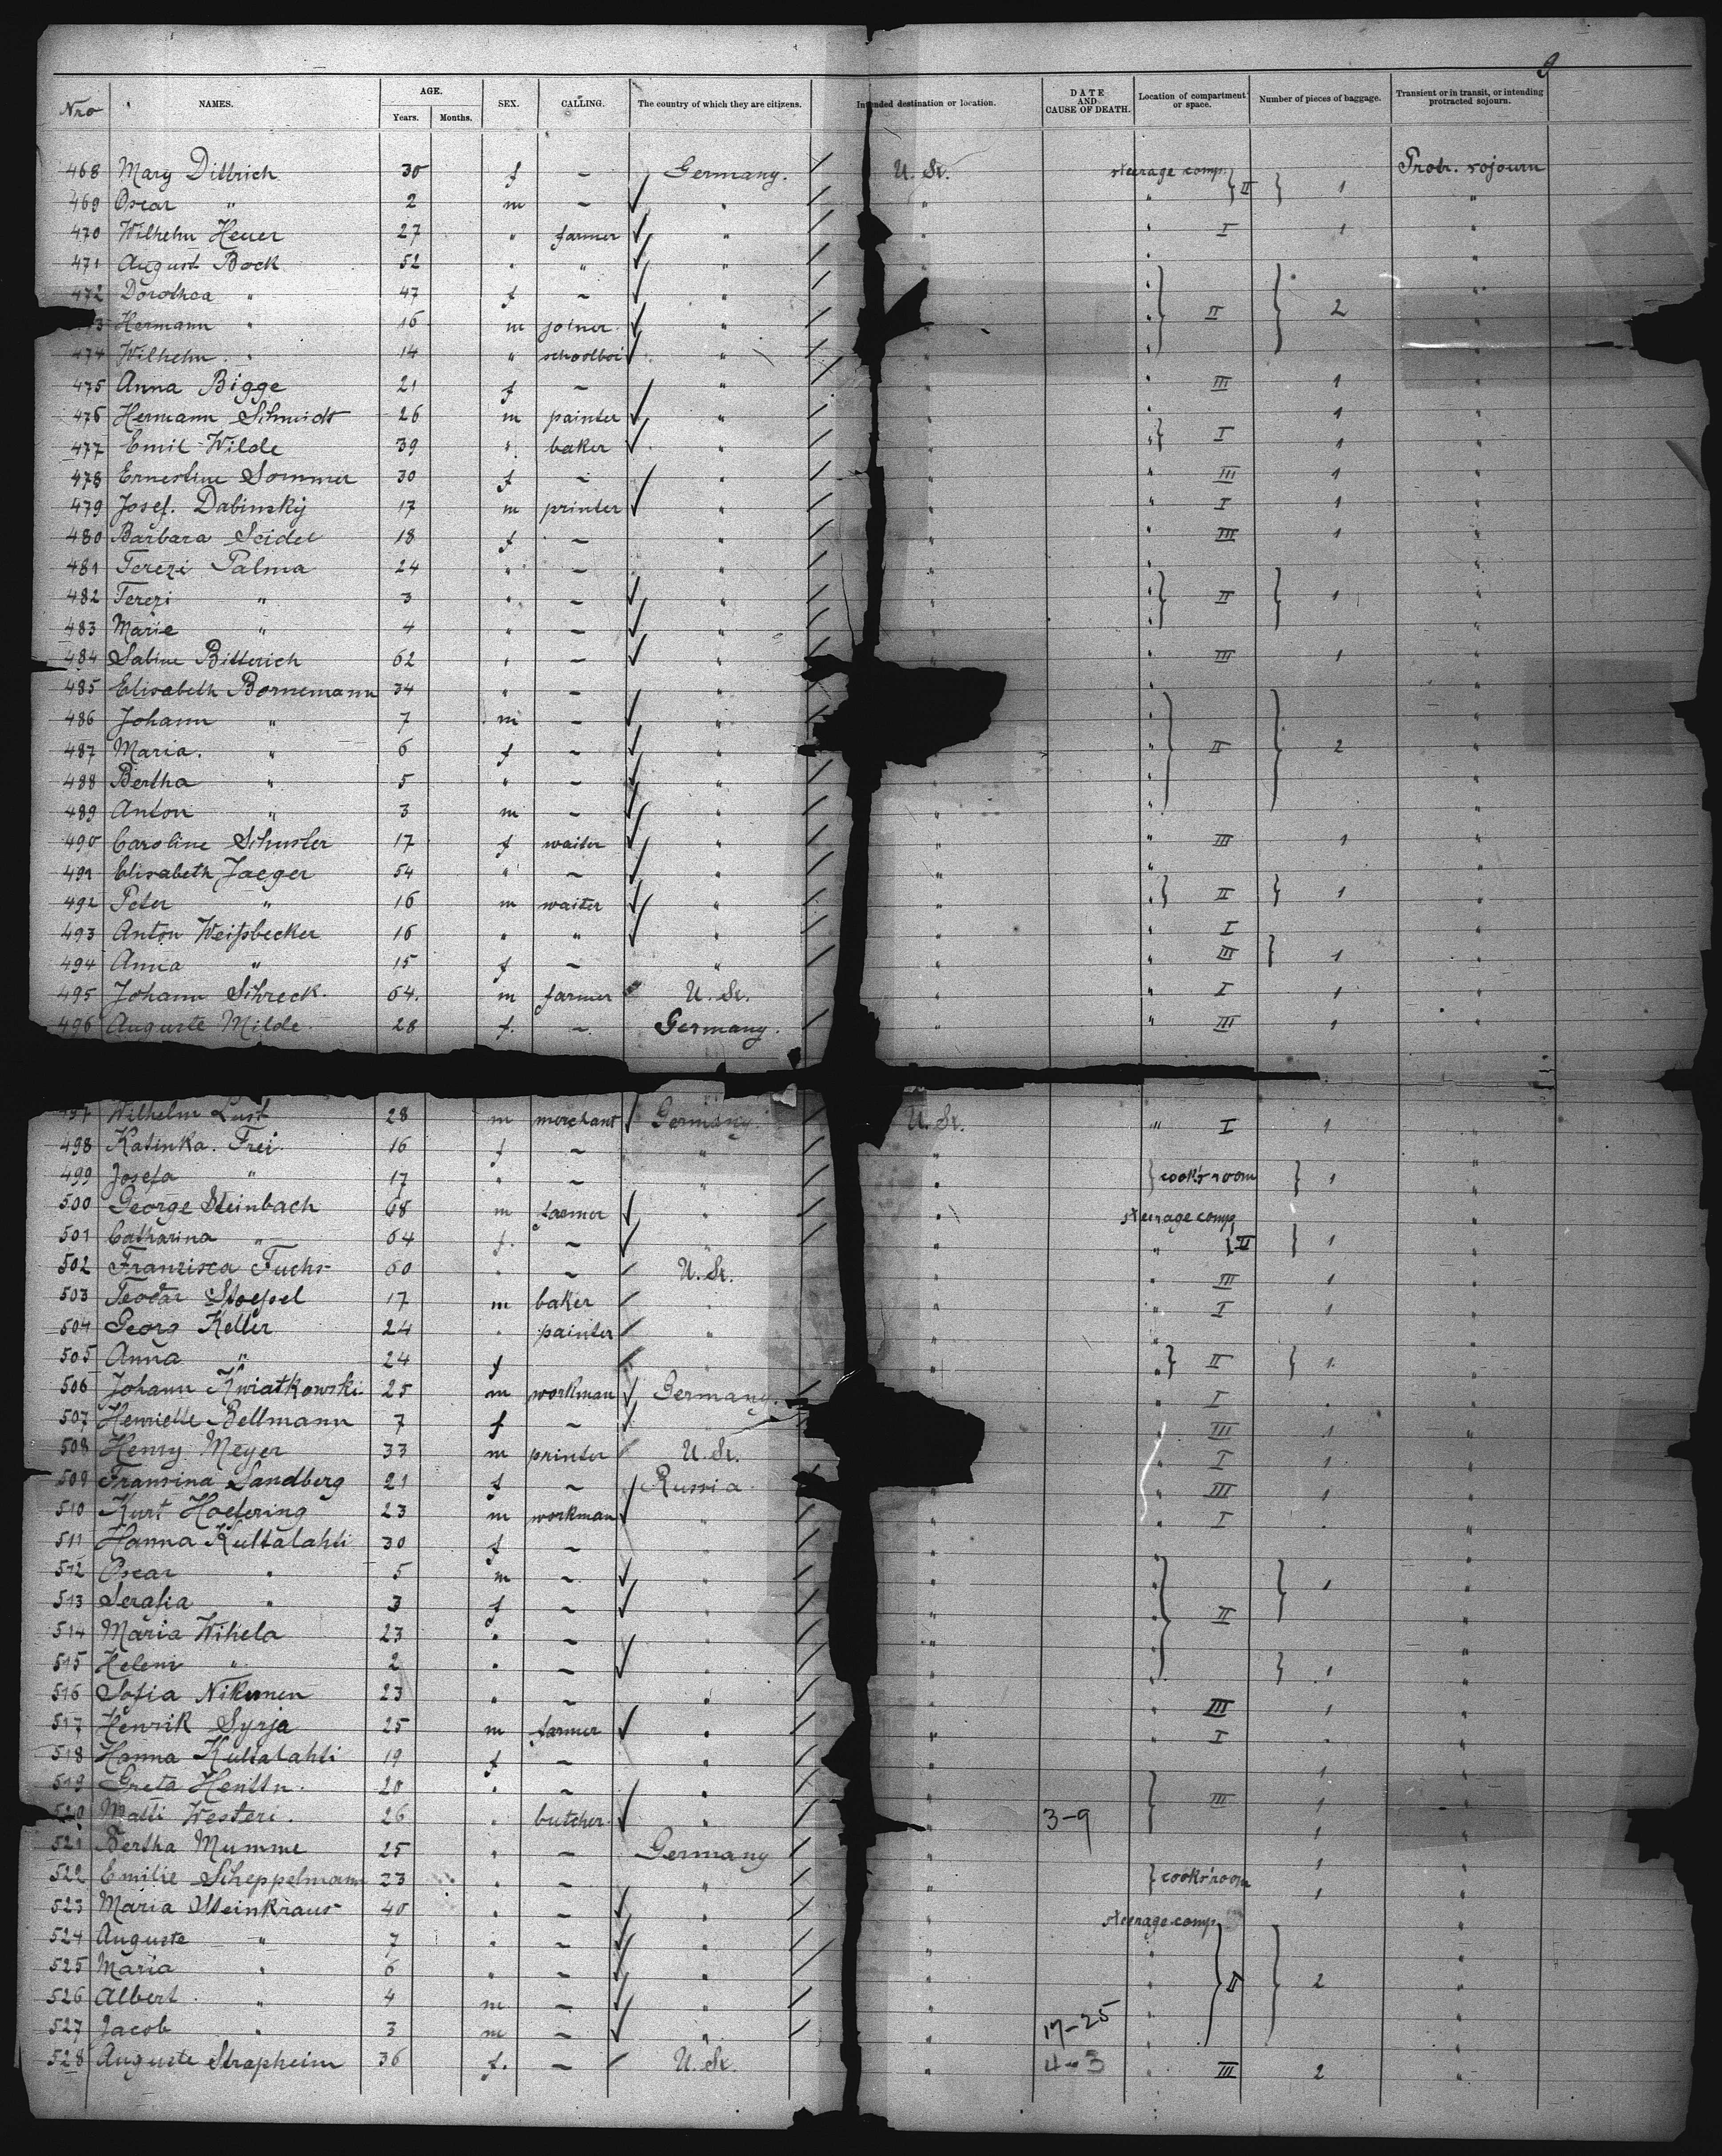 9
Nro NAMES. AGE. Years. Months. SEX. CALLING. The country of which they are citizens. Intended destination or location. DATE AND CAUSE OF DEATH. Location of compartment or space. Number of pieces of baggage. Transient or in transit, or intending protracted sojourn.
468 Mary Dittrich 30 f – Germany. U. St. steerage comp. } II } 1 Protr. sojourn
469 Oscar " 2 m – " " " "
470 Wilhelm Heuer 27 " farmer " " " I 1 "
471 August Bock 52 " " " " " "
472 Dorothea " 47 f – " " " "
Hermann " 16 m joiner " " " } II } 2 "
474 Wilhelm " 14 " schoolboi " " " "
475 Anna Bigge 21 f – " " " III 1 "
476 Hermann Schmidt 26 m painter " " " 1 "
477 Emil Wilde 39 " baker " " " } I 1 "
478 Ernestine Sommer 30 f – " " " III 1 "
479 Josef. Dabinsky 17 m printer " " " I 1 "
480 Barbara Seidel 18 f – " " " III 1 "
481 Terezi Palma 24 " – " " " "
482 Terezi " 3 " – " " " } II } 1 "
483 Marie " 4 " – " " " "
484 Sabine Bitterich 62 " – " " " III 1 "
485 Elisabeth Bornemann 34 " – " " "
486 Johann " 7 m – " " "
487 Maria. " 6 f – " " } II } 2 "
488 Bertha " 5 " – " " " "
489 Anton " 3 m – " " " "
490 Caroline Schuster 17 f waiter " " " III 1 "
491 Elisabeth Jaeger 54 " – " " " "
492 Peter " 16 m waiter " " " } II } 1 "
493 Anton Weißbecker 16 " " " " " I "
494 Anna " 15 f – " " " III } 1 "
495 Johann Schreck. 64. m farmer U. St. " " I 1 "
496 Auguste Milde. 28 f. – Germany. " " III 1 "
Wilhelm Lust 28 m merchant Germany. U. St. " I 1 "
498 Katinka. Frei. 16 f – " " "
499 Josefa " 17 " – " " } cook's room } 1 "
500 George Steinbach 68 m farmer " " steerage comp "
501 Catharina " 64 f. – " " " } II } 1 "
502 Franzisca Fuchs 60 " – U. St. " " III 1 "
503 17 m baker " " " I 1 "
504 Georg Keller 24 " painter " " " "
505 Anna " 24 f " " " } II } 1 "
506 Johann Kwiatkowski 25 m workman Germany. " I "
507 Henriette Bellmann 7 f – III 1 "
508 Henry Meyer 33 m printer U. St. " I 1 "
509 Fransina Sandberg 21 f – Russia " " III 1 "
510 Kurt Hoetering 23 m workman " " " I "
511 Hanna Kultalahti 30 f – " " "
512 Oscar " 5 m – " " " } 1 "
513 Serafia " 3 f – " " " } II "
514 Maria Wihela 23 " – " " "
515 Helem " 2 " – " " } 1 "
516 Sofia Nikunen 23 " – " " " III 1 "
517 Henrik Syrja 25 m farmer " " " I "
518 Hanna Kultalahti 19 f – " " 1 "
519 Greta 20 " – " " } III 1 "
520 Matti Westeri. 26 " butcher. " " 3-9 1 "
521 Bertha Mumme 25 " – Germany " 1 "
522 Emilie Scheppelmann 23 " – " " } cooks'room 1 "
523 Maria Steinkraus 40 " – " " steerage comp "
524 Auguste " 7 " – " " " "
525 Maria " 6 " – " " " } II } 2 "
526 Albert " 4 m – " " " "
527 Jacob " 3 m – " " 17-25 " "
528 Auguste Strapheim 36 f. – U. St. " 4-3 " III 2 "